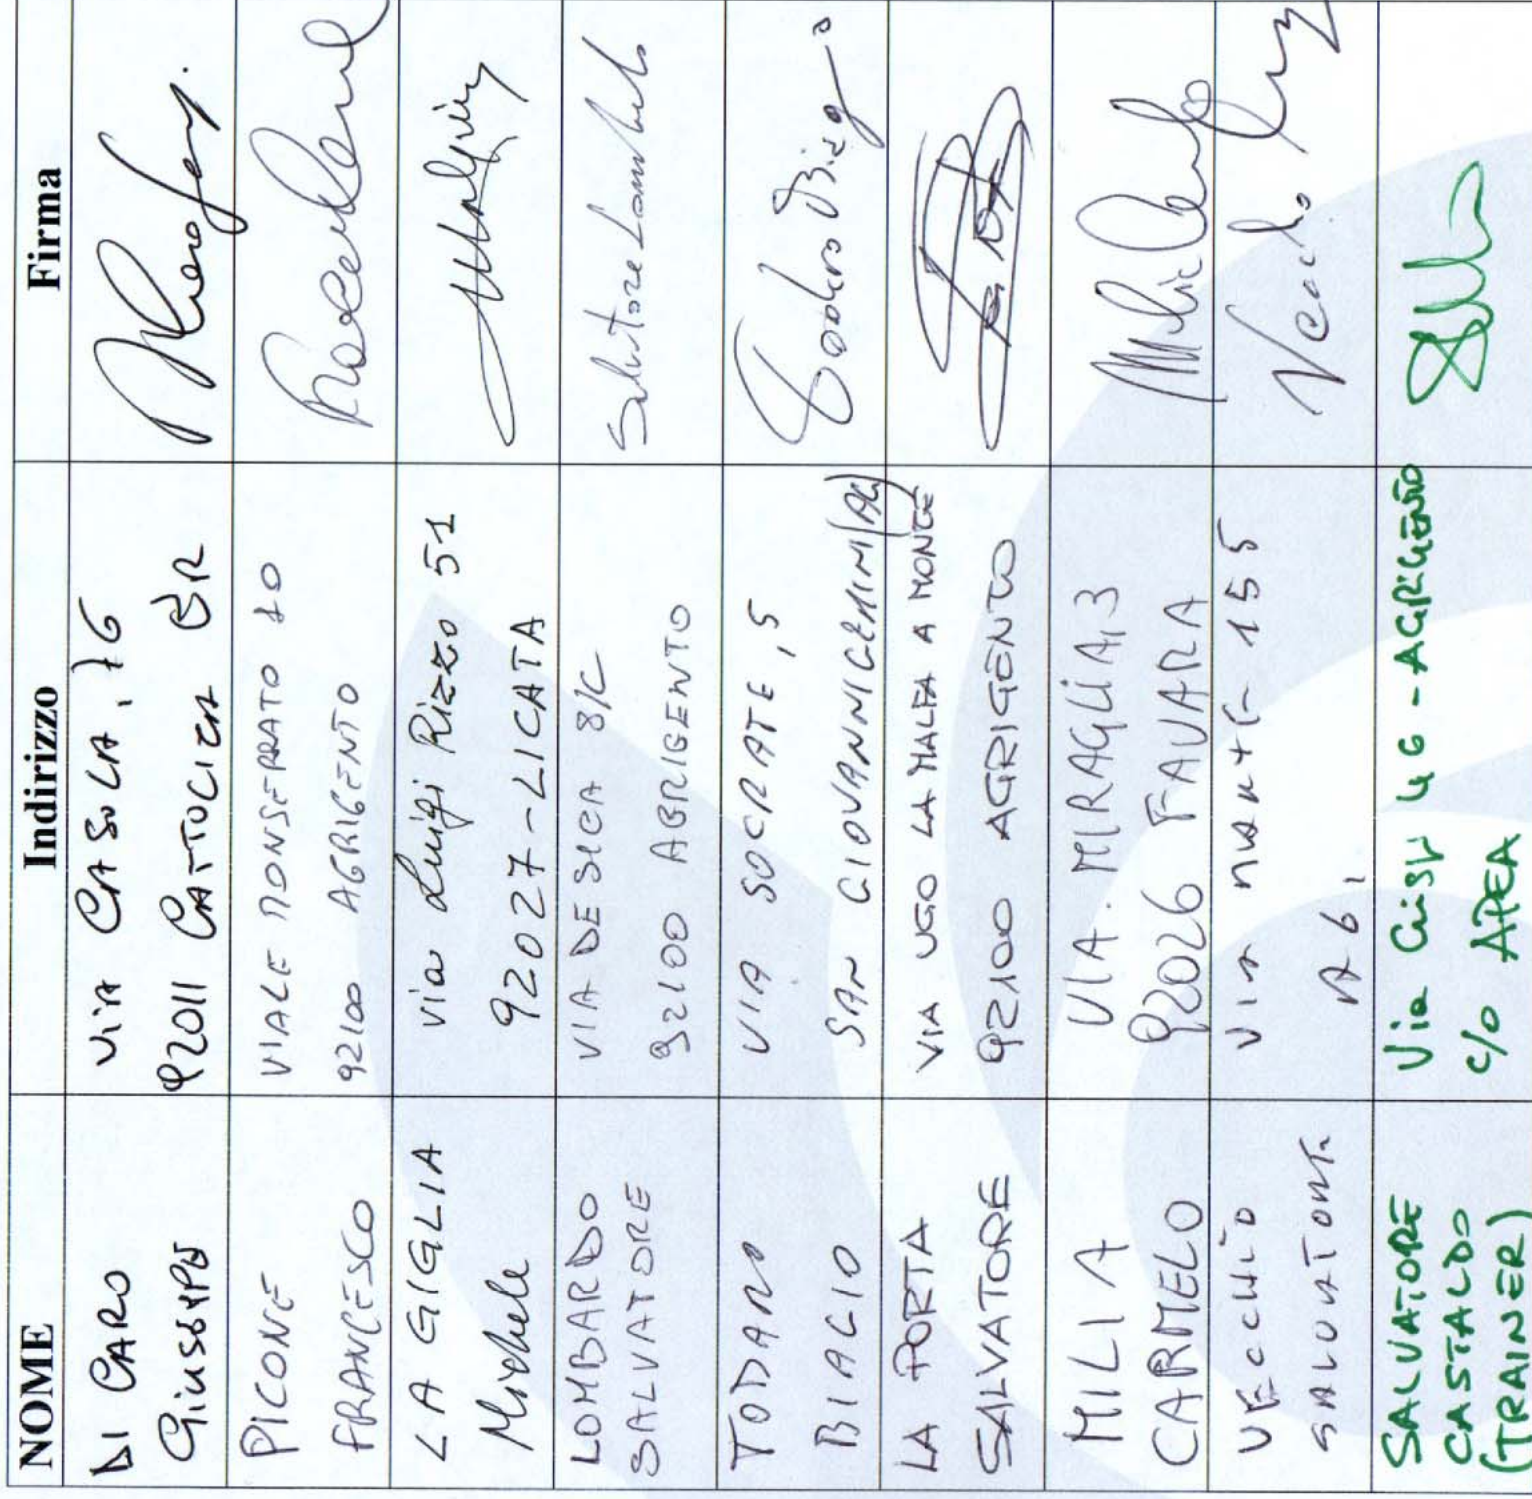 NOME Indirizzo Firma
DI CARO
Giuseppe
Via CASOLA, 76
92011 CATTOLICA
PICONE
FRANCESCO
VIALE MONSERRATO 10
92100 AGRIGENTO
LA GIGLIA
Michele
via Luigi Rizzo 51
92027-LICATA
LOMBARDO
SALVATORE
VIA DE SICA 8/C
92100 AGRIGENTO
Salvatore Lombardo
TODARO
BIAGIO
VIA SOCRATE, 5
SAN GIOVANNI GEMINI (AG)
Todaro Biagio
LA PORTA
SALVATORE
VIA UGO LA MALFA A MONTE
92100 AGRIGENTO
MILIA
CARMELO
VIA. MIRAGLIA, 3
92026 FAVARA
VECCHIO
SALVATORE
Via 155
SALVATORE
CASTALDO
(TRAINER)
Via 46 - AGRIGENTO
c/o APEA